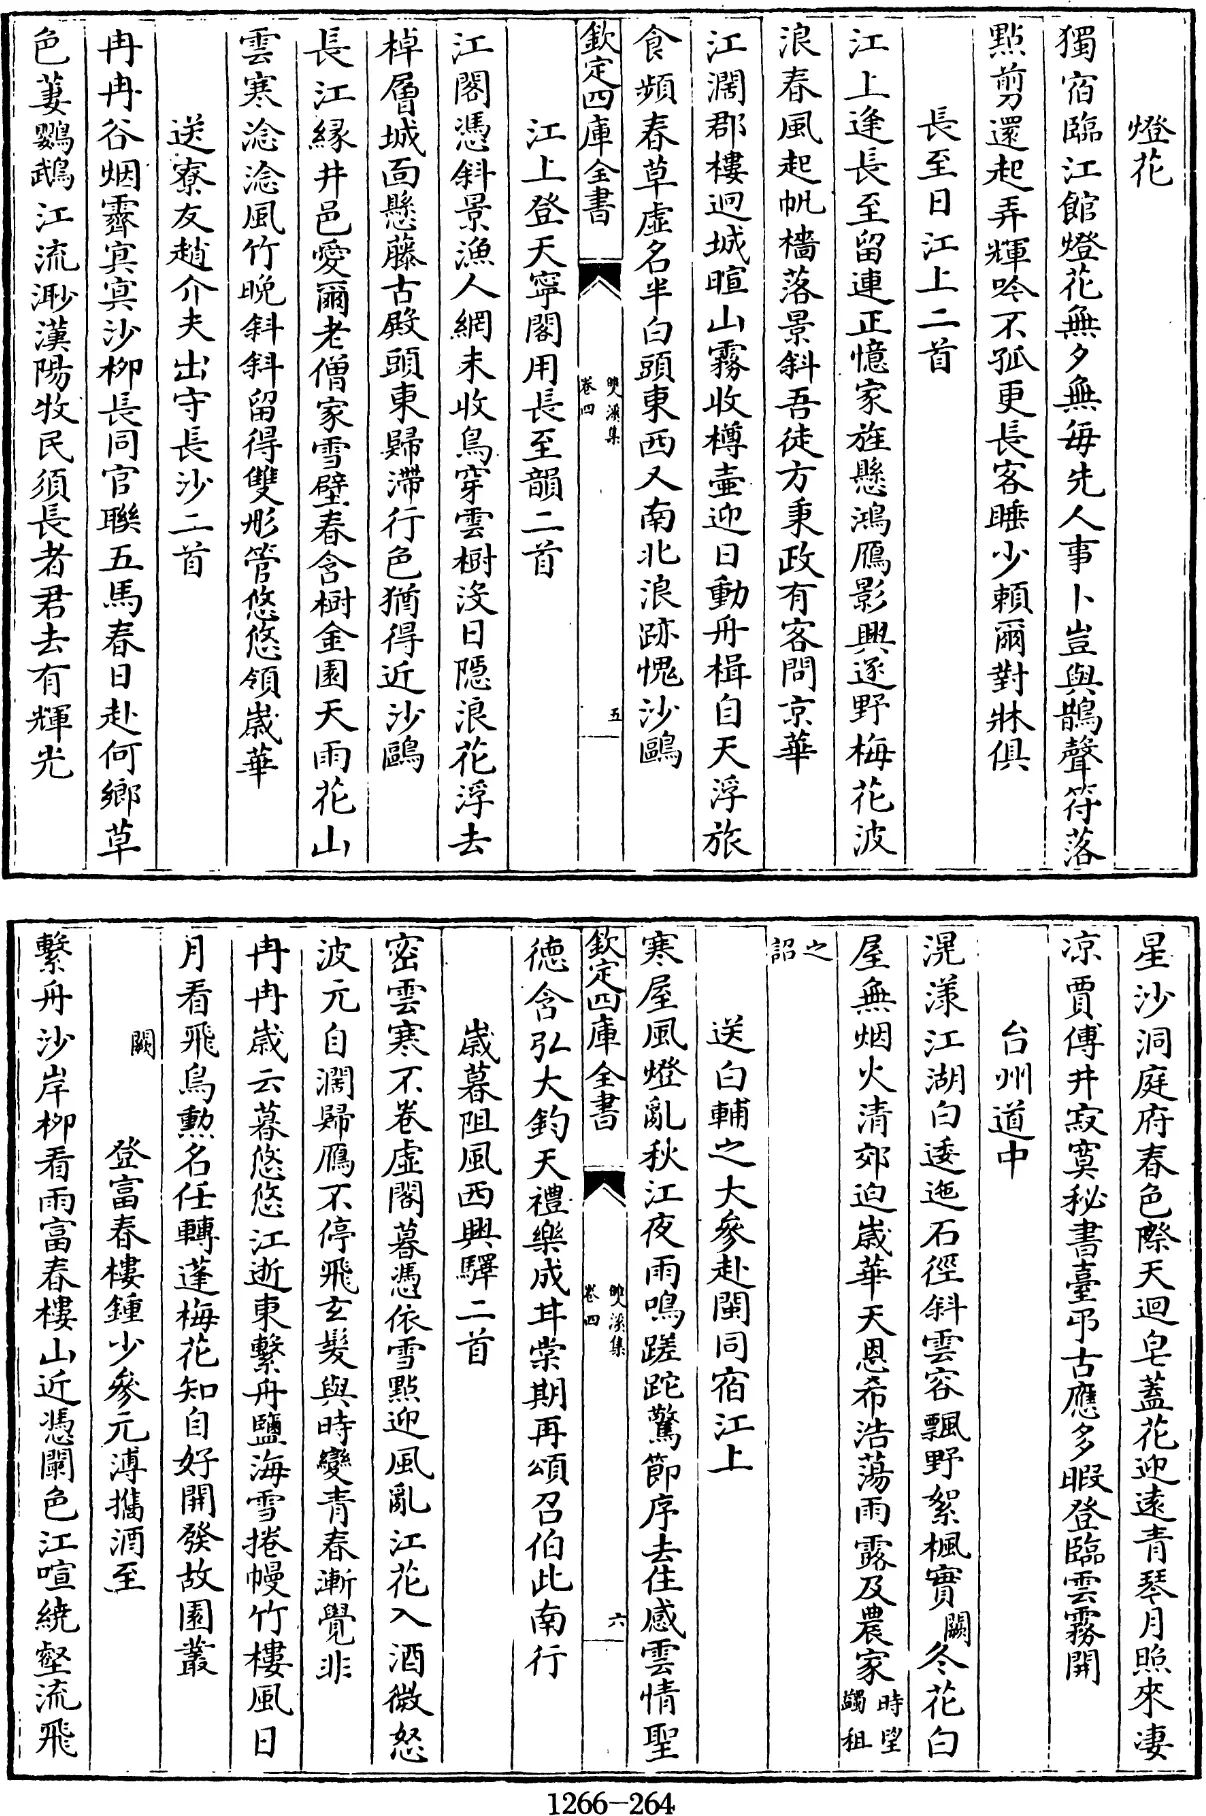 燈花
獨宿臨江館燈花無夕無每先人事卜豈與鵲聲符落
點剪還起弄輝吟不孤更長客睡少頼爾對牀俱
長至日江上二首
江上逢長至留連正憶家旌懸鴻鴈影興逐野梅花波
浪春風起帆檣落景斜吾徒方秉政有客問京華
江濶郡樓迥城暄山霧收樽壷迎日動舟楫自天浮旅
食頻春草虛名半白頭東西又南北浪跡愧沙鷗
欽定四庫全書
雙溪集
卷四
五
江上登天寧閣用長至韻二首
江閣憑斜景漁人網未收鳥穿雲樹沒日隱浪花浮去
棹層城面懸藤古殿頭東歸滯行色猶得近沙鷗
長江緣井邑愛爾老僧家雪壁春含樹金園天雨花山
雲寒淰淰風竹晚斜斜留得雙彤管悠悠領歲華
送寮友趙介夫出守長沙二首
冉冉谷烟霽㝠㝠沙柳長同官聯五馬春日赴何鄉草
色萋鸚鵡江流渺漢陽牧民須長者君去有輝光
星沙洞庭府春色際天迴皂蓋花迎遠青琴月照來凄
凉賈傅井寂寞秘書臺弔古應多暇登臨雲霧開
台州道中
滉漾江湖白逶迤石徑斜雲容飄野絮楓實闕冬花白
屋無烟火清郊迫歲華天恩希浩蕩雨露及農家時望蠲租
之詔
送白輔之大參赴閩同宿江上
寒屋風燈亂秋江夜雨鳴蹉跎驚節序去住感雲情聖
德含弘大鈞天禮樂成甘棠期再頌召伯此南行
欽定四庫全書
雙溪集
卷四
六
歲暮阻風西興驛二首
密雲寒不卷虛閣暮憑依雪點迎風亂江花入酒微怒
波元自濶歸鴈不停飛玄髮與時變青春漸覺非
冉冉歲云暮悠悠江逝東繫舟鹽海雪捲幔竹樓風日
月看飛鳥勲名任轉蓬梅花知自好開發故園叢
闕
登富春樓鍾少參元溥攜酒至
繫舟沙岸柳看雨富春樓山近憑闌色江喧繞壑流飛
1266-264